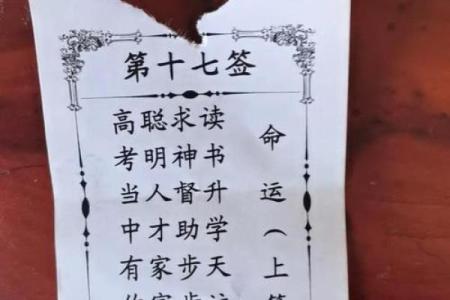 第十七签
命运（上
读书升学天
求神督助步步
聪明人才家家
高考当中有